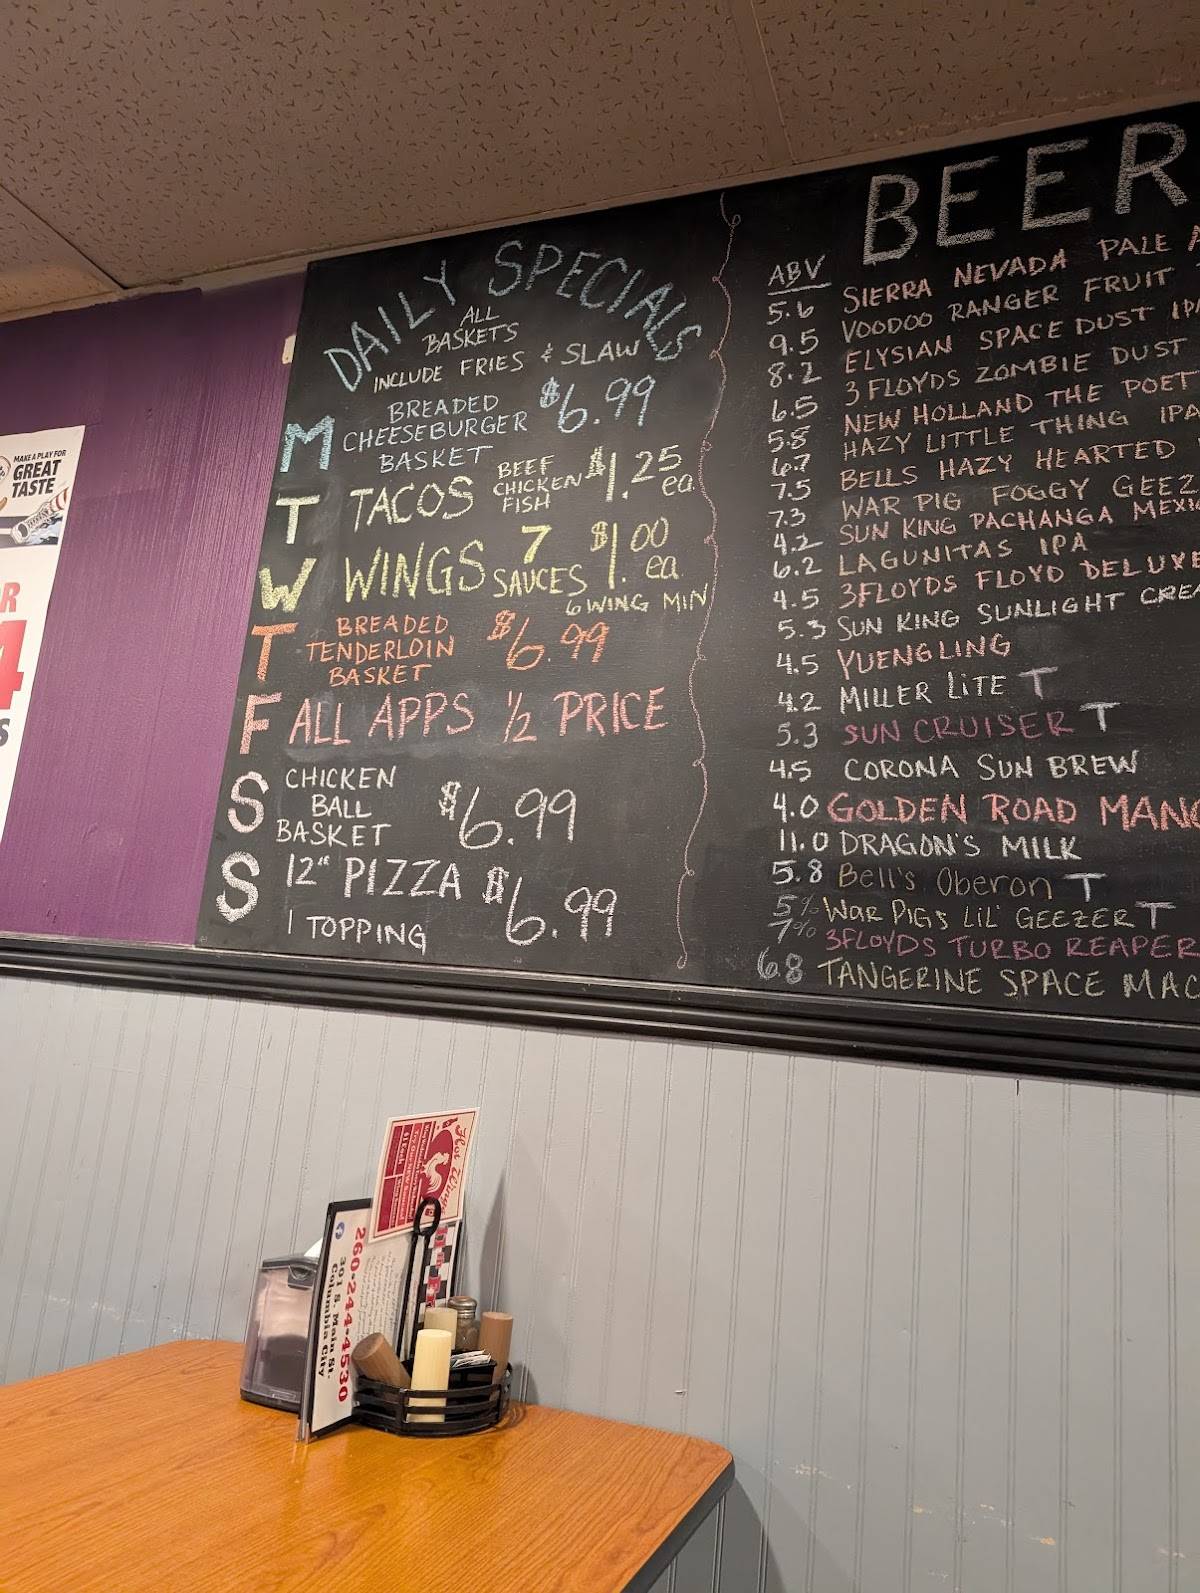 DAILY SPECIALS
ALL
BASKETS
INCLUDE FRIES & SLAW
M BREADED
CHEESEBURGER
BASKET
$6.99
T TACOS
BEEF
CHICKEN
FISH
$1.25
ea.
W WINGS
7
SAUCES
$1.00
ea.
6 WING MIN
T BREADED
TENDERLOIN
BASKET
$6.99
F ALL APPS 1/2 PRICE
S CHICKEN
BALL
BASKET
$6.99
S 12" PIZZA
1 TOPPING
$6.99
BEER
ABV
5.6 SIERRA NEVADA PALE
9.5 VOODOO RANGER FRUIT
8.2 ELYSIAN SPACE DUST IPA
6.5 3 FLOYDS ZOMBIE DUST
5.8 NEW HOLLAND THE POET
6.7 HAZY LITTLE THING IPA
7.5 BELLS HAZY HEARTED
7.3 WAR PIG FOGGY GEEZ
4.2 SUN KING PACHANGA MEXI
6.2 LAGUNITAS IPA
4.5 3FLOYDS FLOYD DELUXE
5.3 SUN KING SUNLIGHT CREA
4.5 YUENGLING
4.2 MILLER LITE T
5.3 SUN CRUISER T
4.5 CORONA SUN BREW
4.0 GOLDEN ROAD MANG
11.0 DRAGON'S MILK
5.8 Bell's Oberon T
5% War PIGS LiL' GEEZER T
7% 3FLOYDS TURBO REAPER
6.8 TANGERINE SPACE MAC
MAKE A PLAY FOR
GREAT
TASTE
Hot Wings
260-244-4530
301 S. Main St.
Columbia City